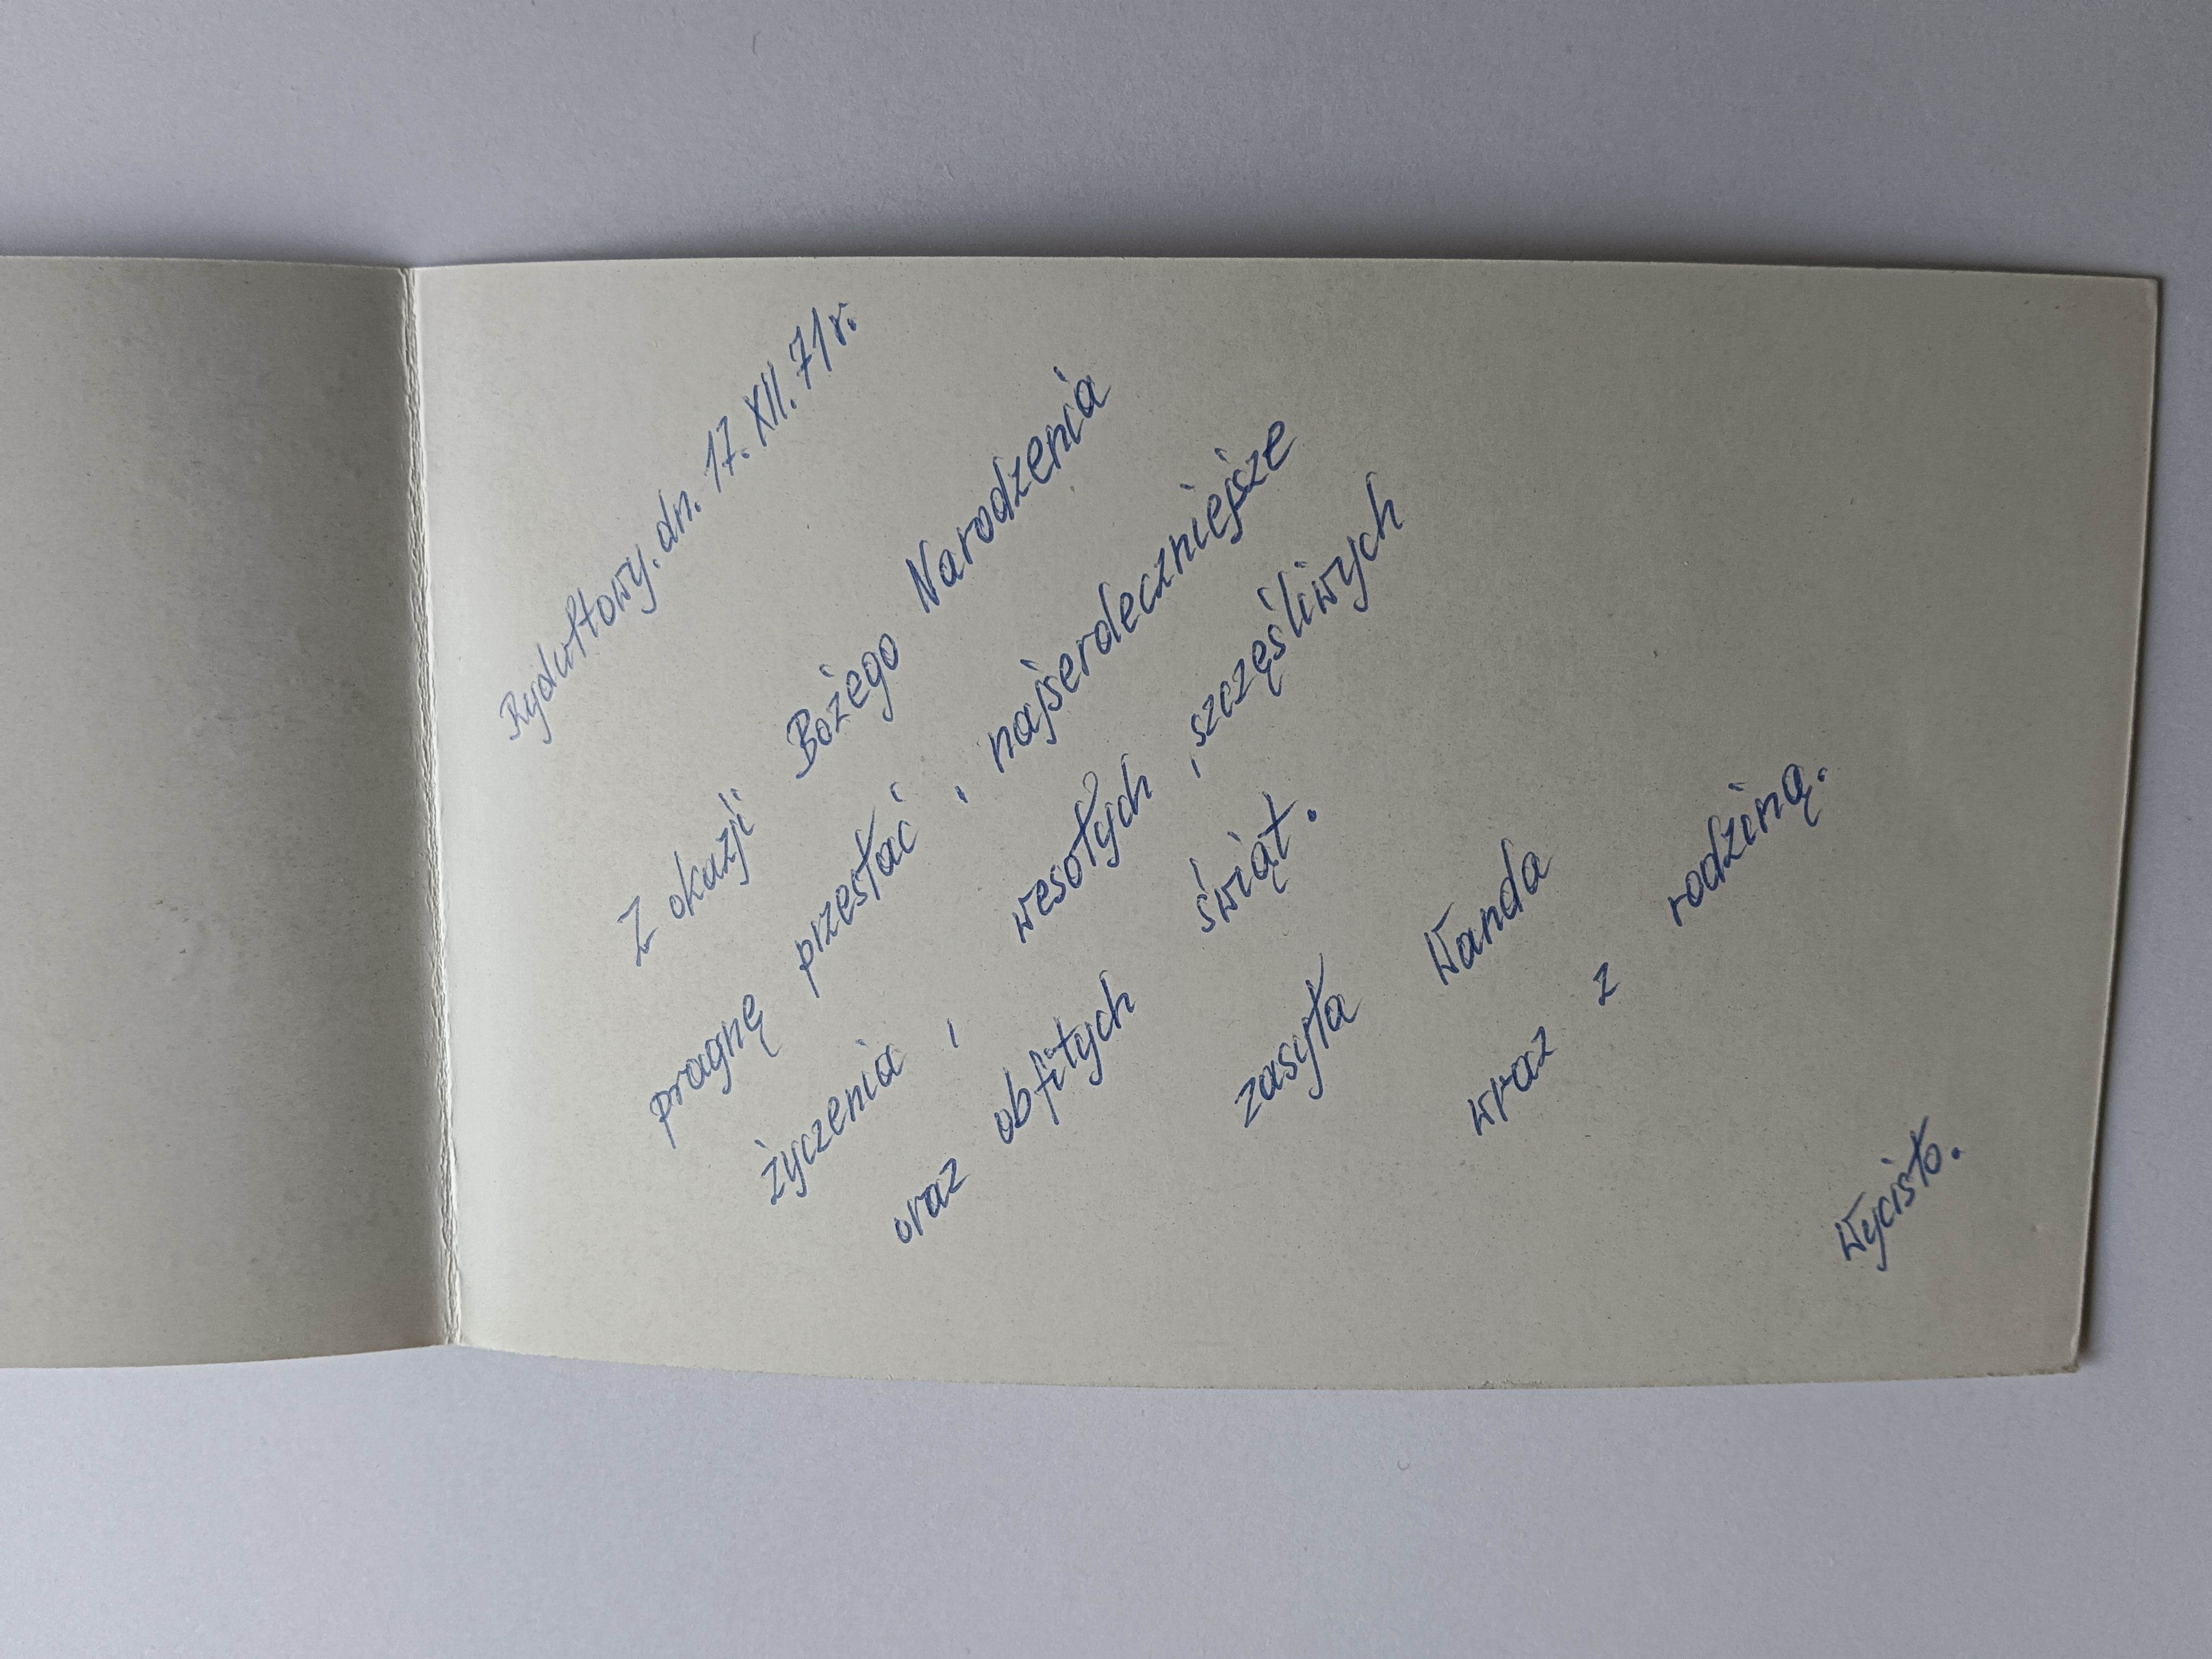 Rydułtowy. dn. 17. XII. 71 r.
Z okazji Bożego Narodzenia
pragnę przesłać, najserdeczniejsze
życzenia, wesołych, szczęśliwych
oraz obfitych świąt.
zasyła Wanda
wraz z rodziną.
Wycisło.